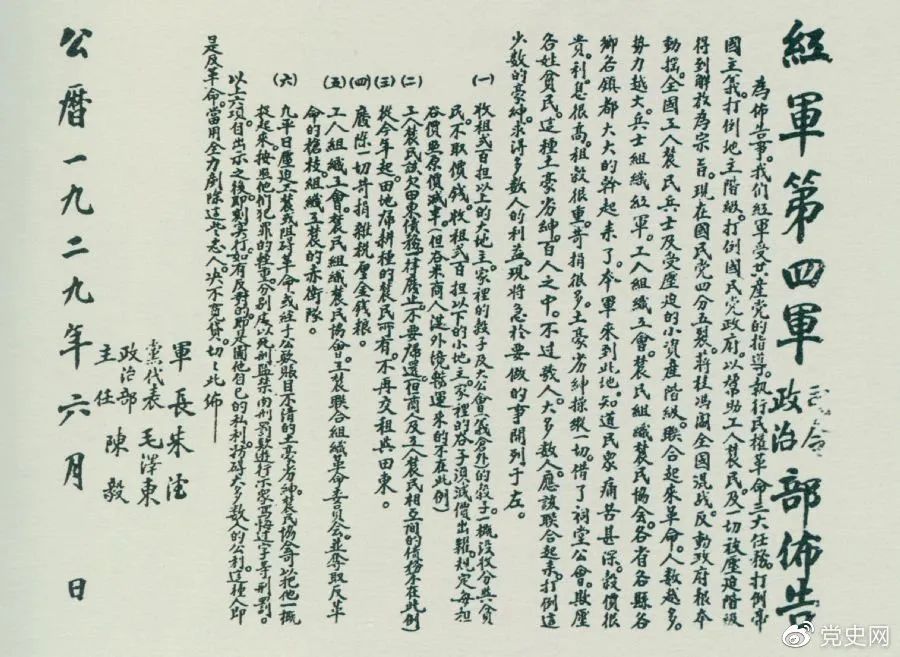 紅軍第四軍司令部政治部佈告
為佈告事。我們紅軍受共產黨的指導。執行民權革命三大任務。打倒帝
國主義。打倒地主階級。打倒國民党政府。以幫助工人農民。及一切被壓迫階級
得到解放為宗旨。現在國民党四分五裂。蔣桂馮閻全國混战。反動政府根本
動搖。全國工人農民兵士及受壓迫的小資產階級。聯合起來革命。人數越多。
勢力越大。兵士組織紅軍。工人組織工會。農民組織農民協会。各省各縣各
鄉各鎮都大大的幹起來了。本軍來到此地。知道民眾痛苦甚深。穀價很
貴。利息很高。租穀很重。苛捐很多。土豪劣紳操縱一切。借了祠堂公會。欺壓
各姓貧民。這種土豪劣紳。百人之中。不过数人。大多数人。應該联合起來。打倒這
少数的豪紳。求得多数人的利益。現將急於要做的事開列于左。
(一) 收租式百担以上的大地主。家裡的穀子及大公會(義倉外)的穀子。一概沒收分與貧
民。不取價钱。收租式百担以下的小地主。家裡的谷子。須減價出糶。規定每担
谷價照原價減半。(但谷米商人從外境輓運来的不在此例)
(二) 工人農民該欠田東債務。一律廢止。不要歸還。(但商人及工人農民相互間的債務不在此例)
(三) 從今年起。田地歸耕種的農民所有。不再交租與田東。
(四) 廢除一切苛捐雜税厘金钱粮。
(五) 工人組織工會。農民組織農民協會。工農联合組織革命委員会。並奪取反革
命的槍枝。組織工農的赤衛隊。
(六) 凡平日壓迫工農或阻碍革命。或經手公款賬目不清的土豪劣紳。農民協會可以把他一概
捉起來。按照他們犯罪的輕重。分别處以死刑監禁肉刑罰款遊行示眾寫悔过字等刑罰。
以上六項。自出示之後。即刻实行。如有反對的。即是圖他自己的私利。妨碍大多数人的公利。這種人即
是反革命。當用全力剷除這些恶人。决不寬貸。切切此佈
軍長 朱德
黨代表 毛澤東
政治部主任 陳毅
公曆一九二九年六月 日
党史网